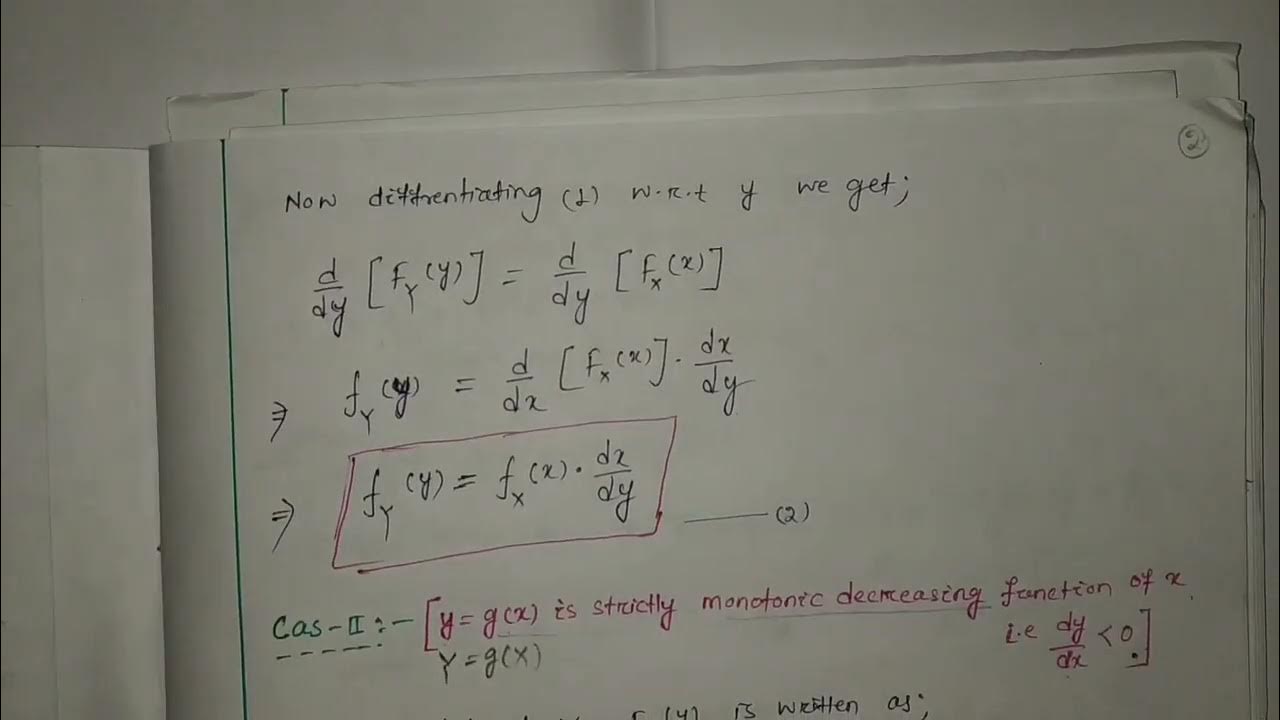 ②
Now diffrentiating (1) w.r.t y we get;
d/dy [F_Y(y)] = d/dy [F_X(x)]
⇒ f_Y(y) = d/dx [F_X(x)] · dx/dy
⇒ f_Y(y) = f_X(x) · dx/dy —— (2)
Cas-II :- [y = g(x) is strictly monotonic decreasing function of x.
Y = g(X) i.e dy/dx < 0]
(y) is written as;